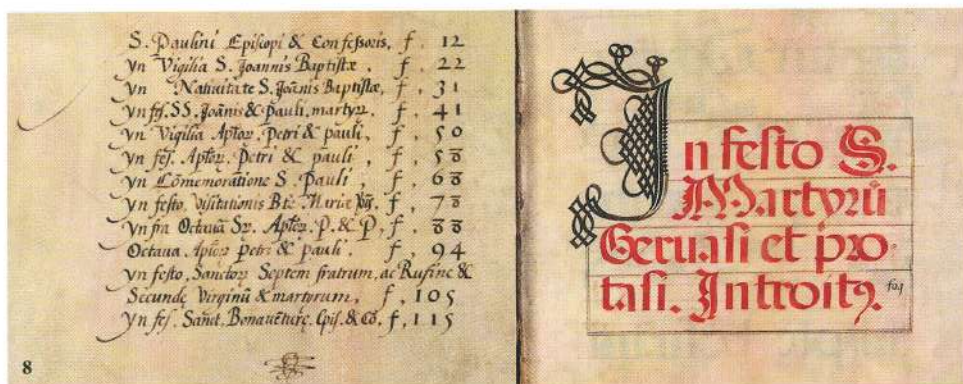 S. Paulini Episcopi & Confessoris, f. 12
yn Vigilia S. Joannis Baptistæ, f. 22
yn Nativitate S. Joãnis Baptistæ, f. 31
yn fes. SS. Joãnis & Pauli. martyrꝝ. f. 41
yn Vigilia Aptõꝝ. Petri & pauli, f. 50
yn fes. Aptõꝝ. Petri & pauli, f. 58
yn Cõmemoratione S. Pauli, f. 68
yn festo. Visitationis Bte. Mariæ f. 78
yn fra Octauã Sꝝ. Aptõꝝ. P. & P, f. 88
Octaua. Aptõꝝ Petri & pauli. f. 94
yn festo. Sanctoꝝ Septem fratrum, ac Rufine &
Secundę Virginũ & martyrum, f, 105
yn fes. Sanct. Bonauẽturę. Epis. & Cõ. f, 115
8
In festo S.
Martyrũ
Geruasi et pro
tasi. Introitꝰ.